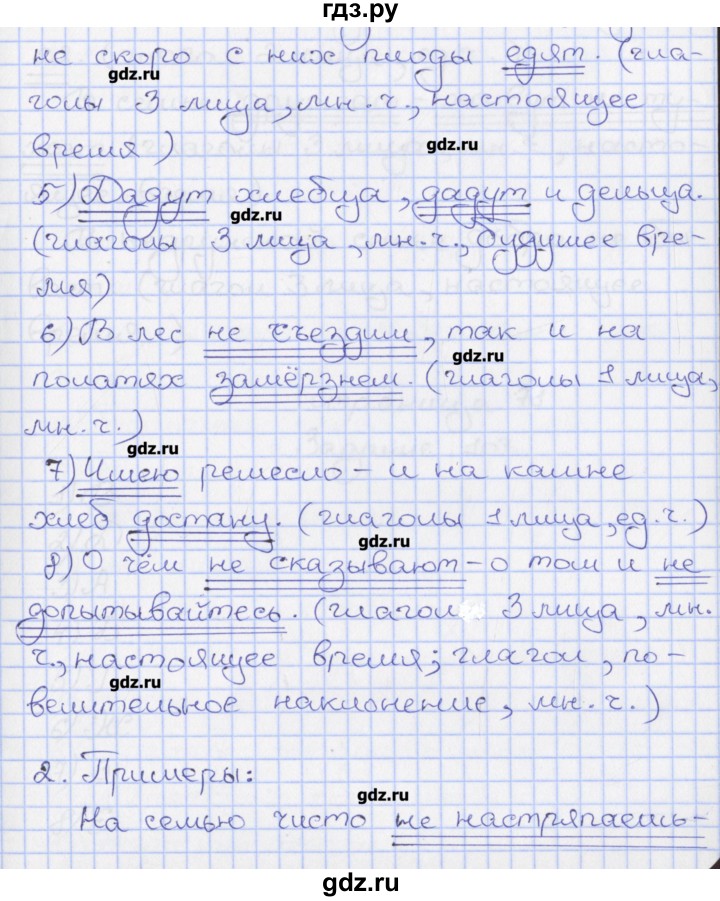 гдз.ру
не скоро с них плоды едят. (гла-
gdz.ru
голы 3 лица, мн. ч., настоящее
время)
gdz.ru
5) Дадут хлебца, дадут и дельца.
gdz.ru
(глаголы 3 лица, мн. ч., будущее вре-
мя)
6) В лес не съездим, так и на
gdz.ru
полатях замёрзнем. (глаголы 1 лица,
мн. ч.)
gdz.ru
7) Имею ремесло – и на камне
хлеб достану. (глаголы 1 лица, ед. ч.)
gdz.ru
8) О чём не сказывают – о том и не
допытывайтесь. (глагол 3 лица, мн.
ч., настоящее время; глагол, по-
gdz.ru
велительное наклонение, мн. ч.)
2. Примеры:
gdz.ru
На семью чисто не настряпаешь-
gdz.ru